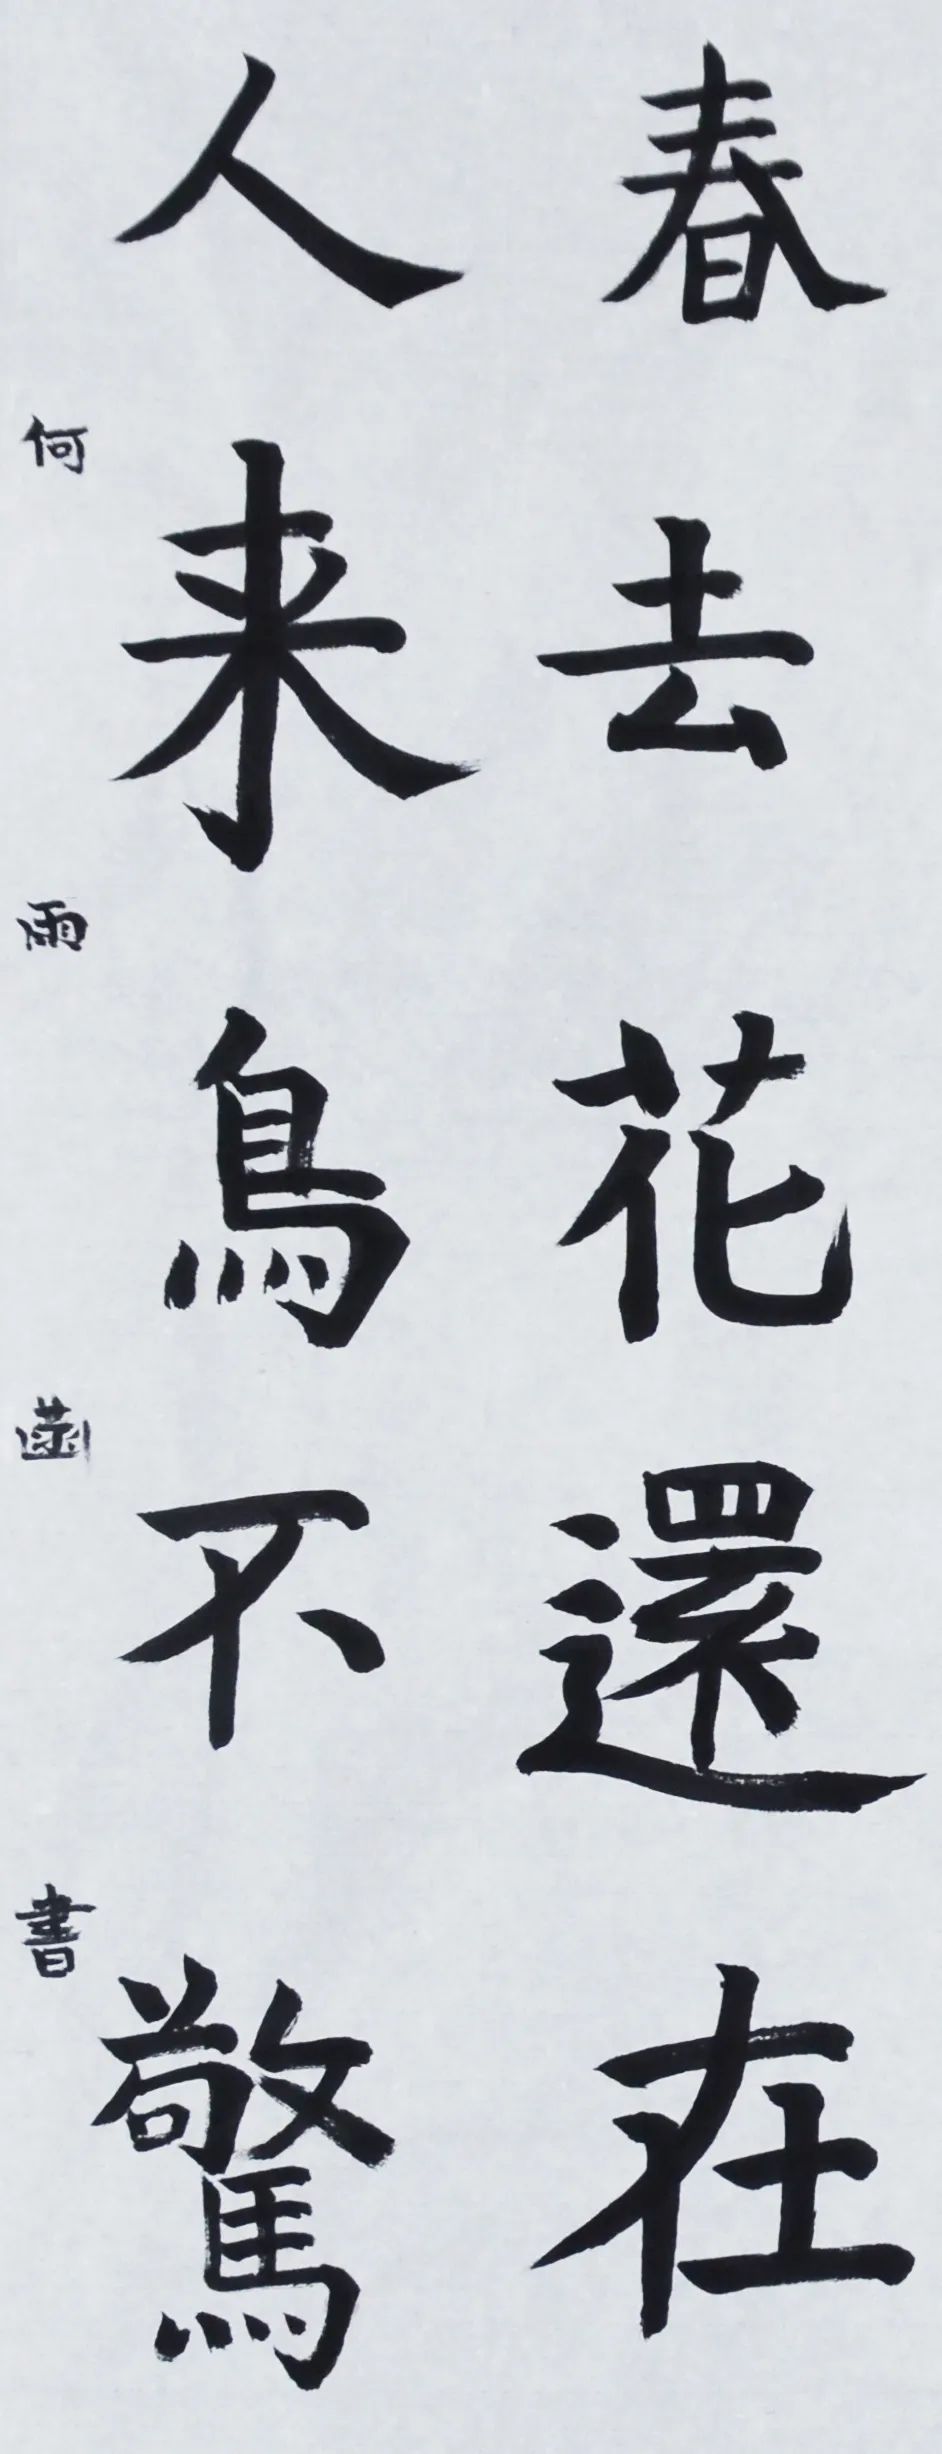 春去花還在
人来鳥不驚
何雨菡書